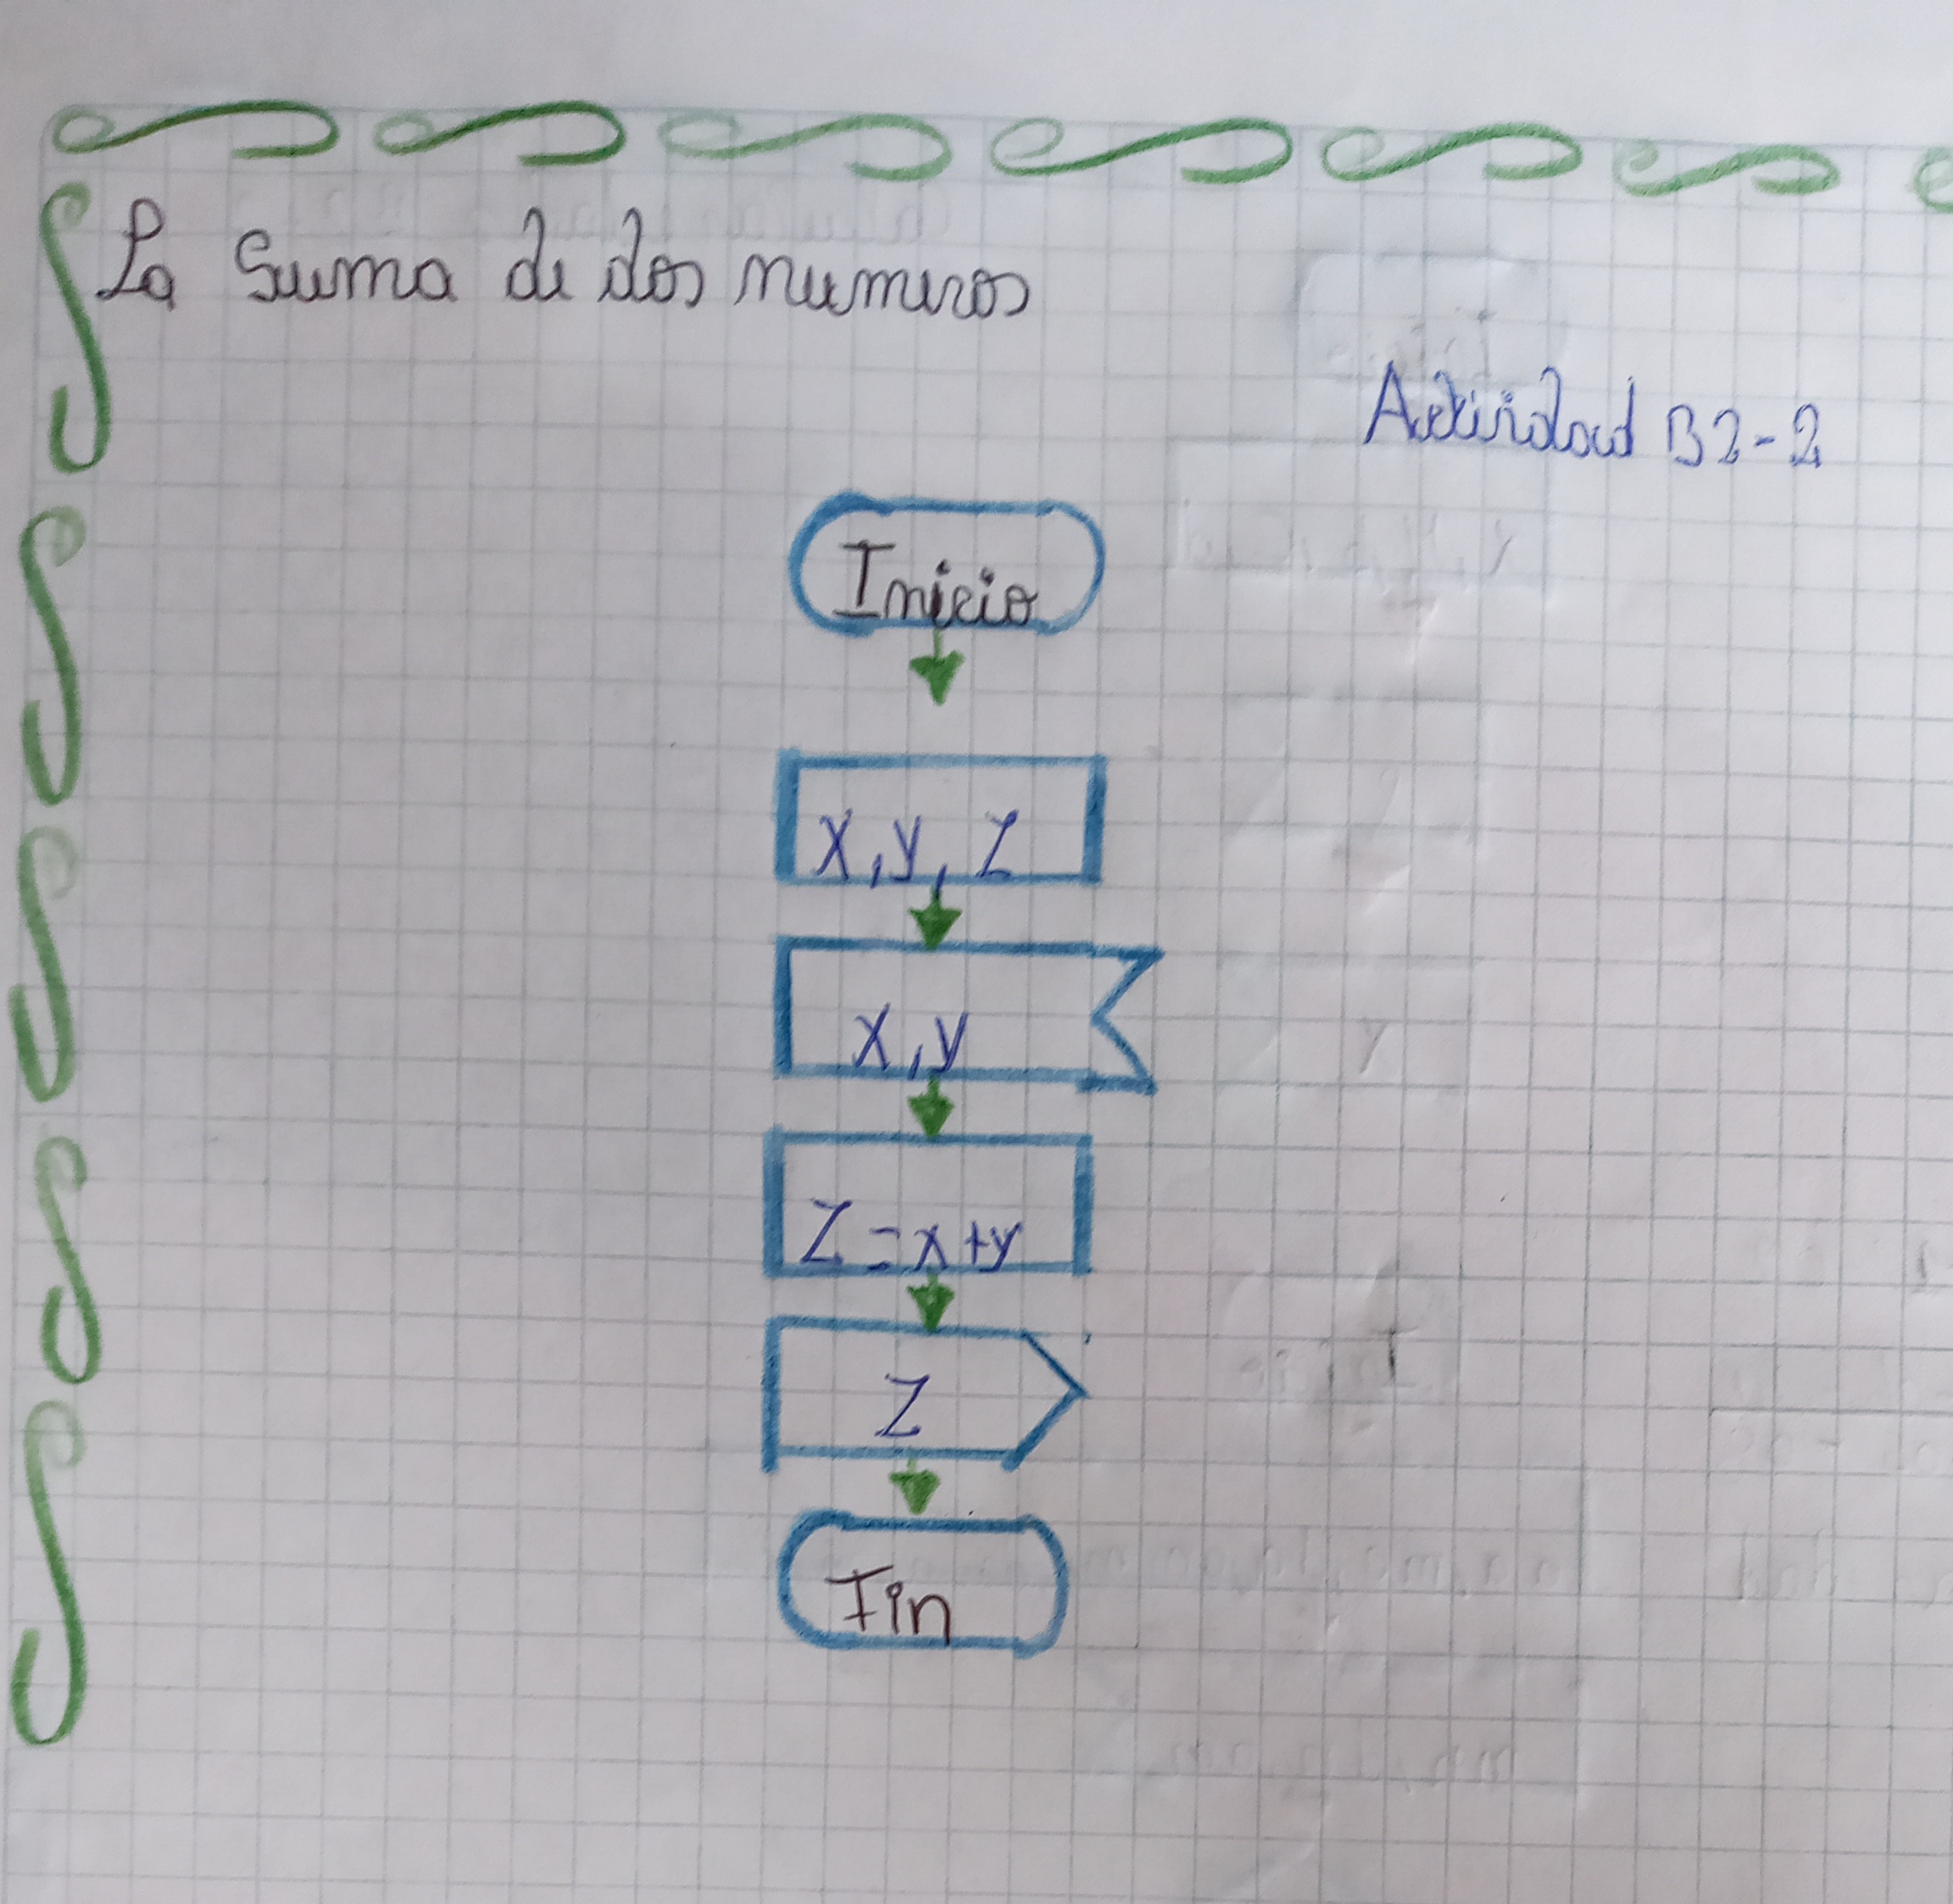 La Suma de dos numeros
Actividad B2-2
Inicio
X, y, Z
X, y
Z = x + y
Z
Fin